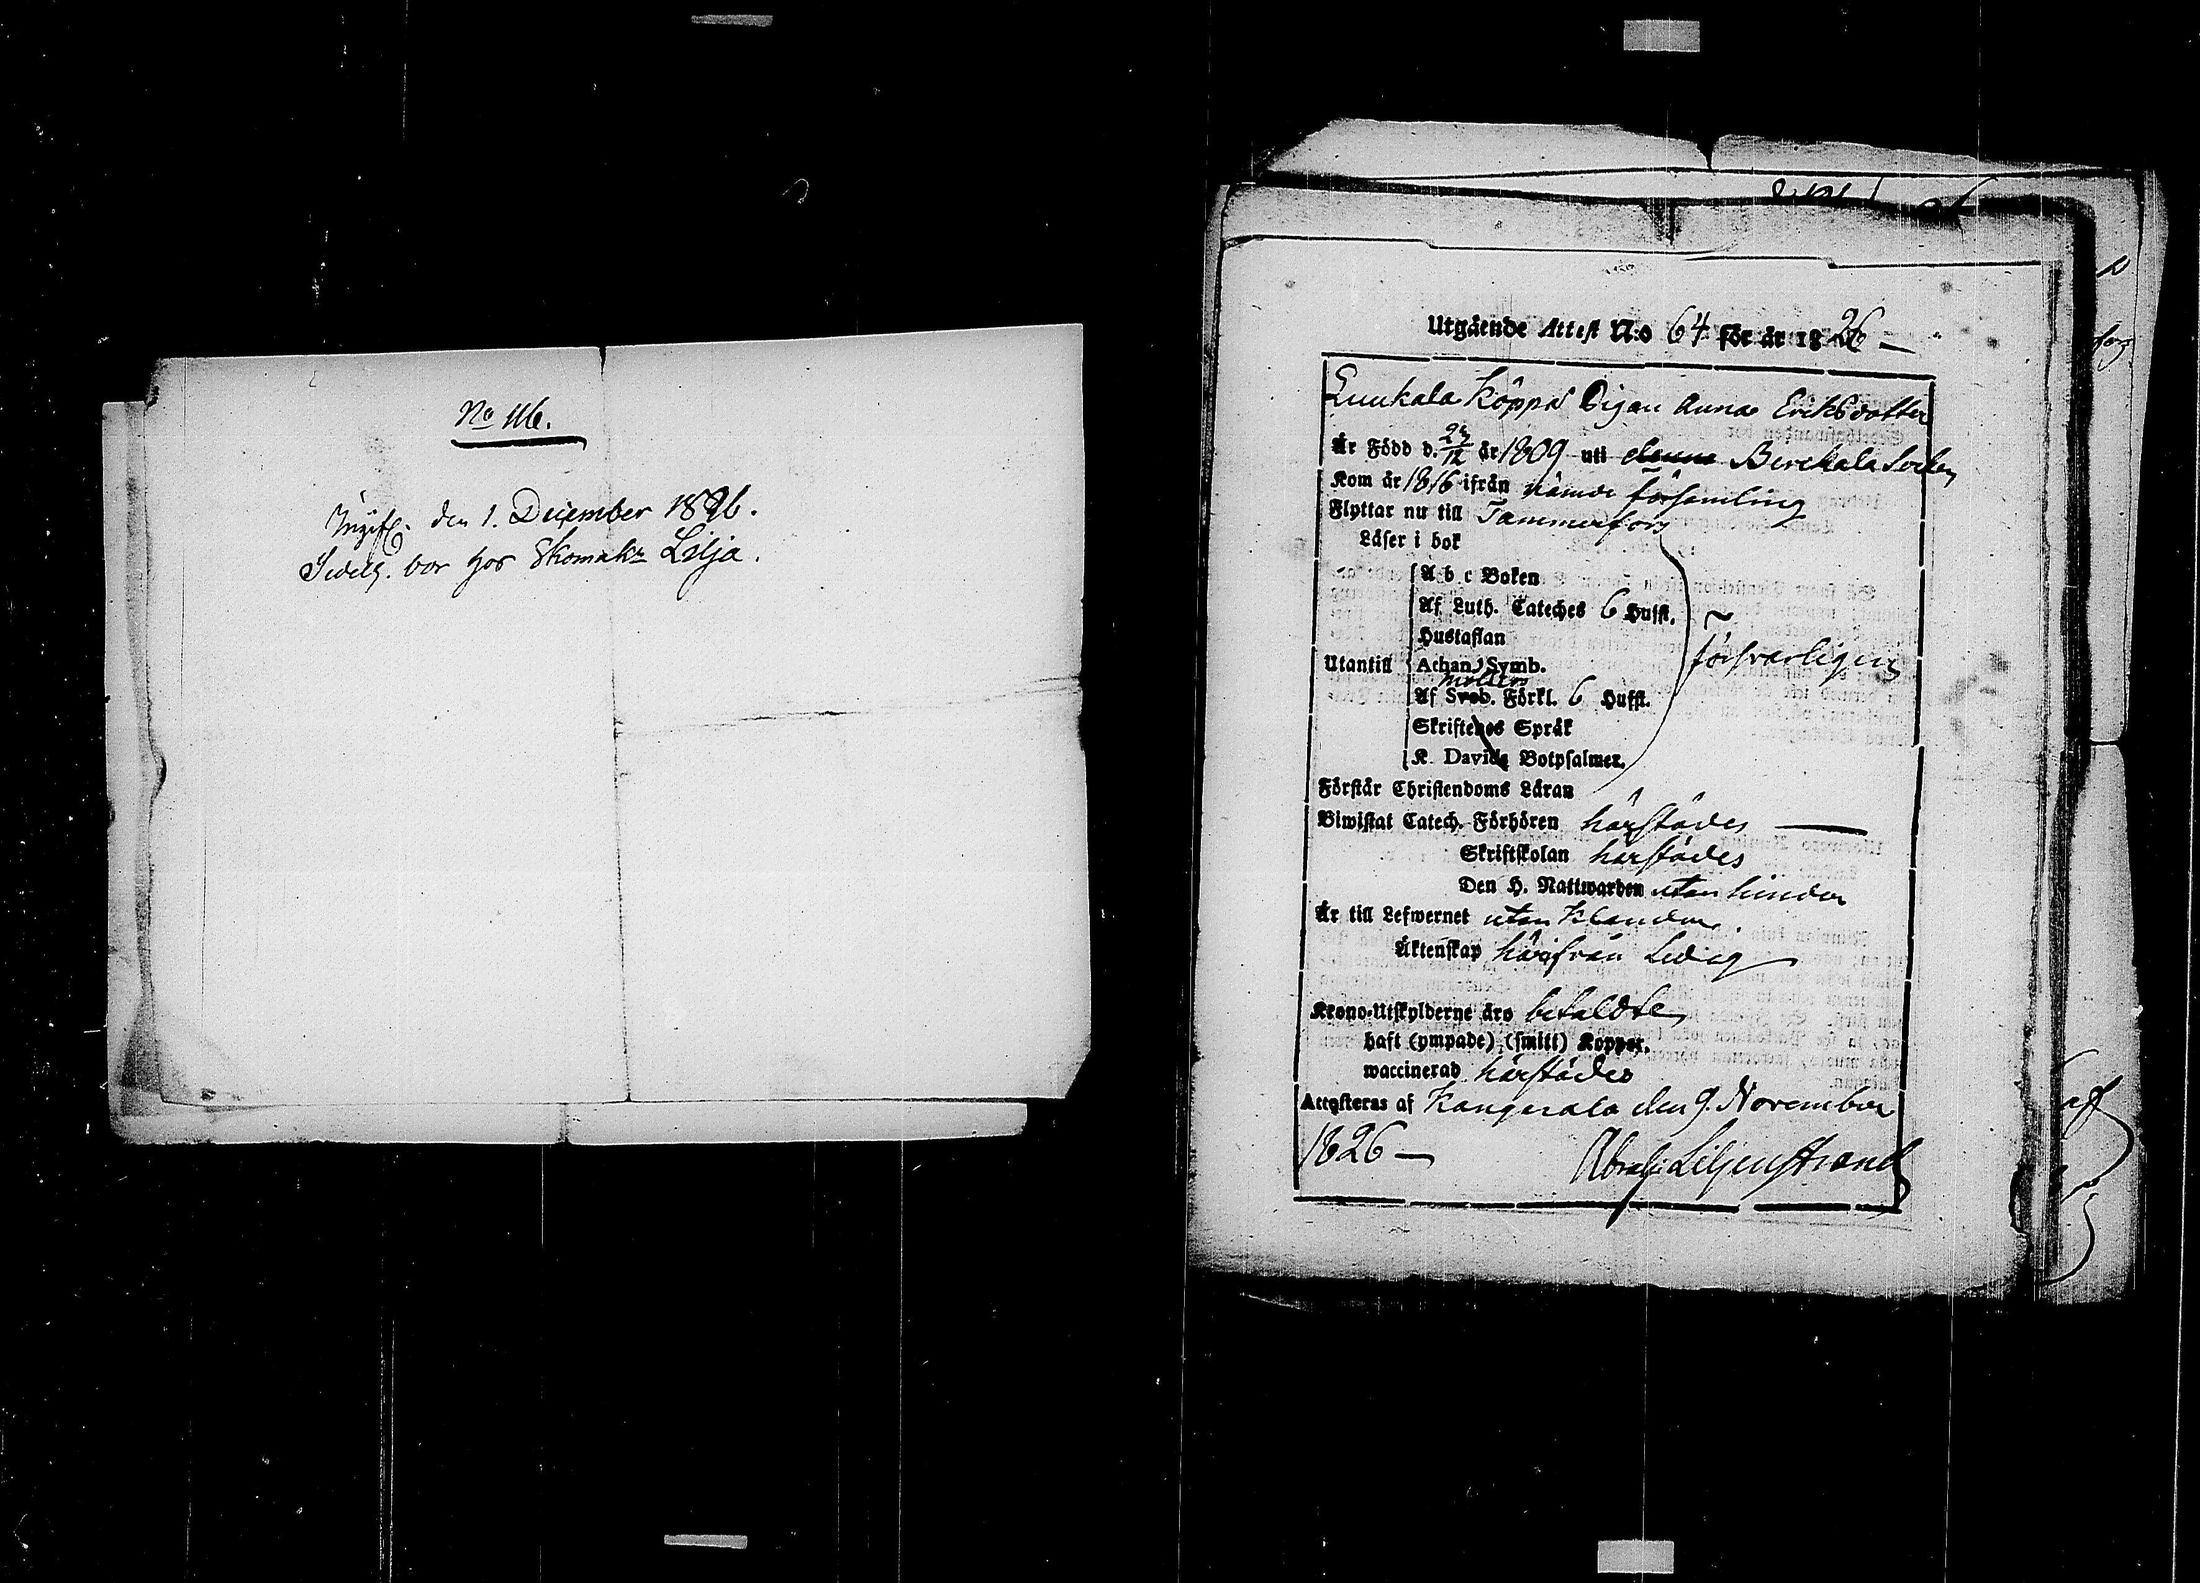 No 116.
Ingifv. den 1. December 1826.
Sedeln. bor hos Skomakr Lilja.
Utgående Attest N:o 64 för år 1826 —
Luukala Köppä Pigan Anna Eriksdotter
Är Född d. 27/12 år 1809 uti denna Birckala Socken
Kom år 1816 ifrån nämde församling
Flyttar nu till Tammerfors
Läser i bok
A b c Boken
Af Luth. Cateches 6 Huffst.
Hustaflan
förfvarligen
Utantill Athan. Symb.
mollers
Af Sveb. Förkl. 6 Huffst.
Skriftenes Språk
K. Davids Botpsalmer.
Förstår Christendoms Läran
Biwistat Catech. Förhören härstädes —
Skriftskolan härstädes
Den H. Nattwarden utan hinder
Är till Lefwernet utan klander.
Äktenskap härifrån Ledig
Krono-Utskylderne äro betaldte
haft (ympade) (smitt) Koppor.
waccinerad härstädes
Attesteras af Kangasala den 9. November
1826 —
Abrah: Liljenstrand